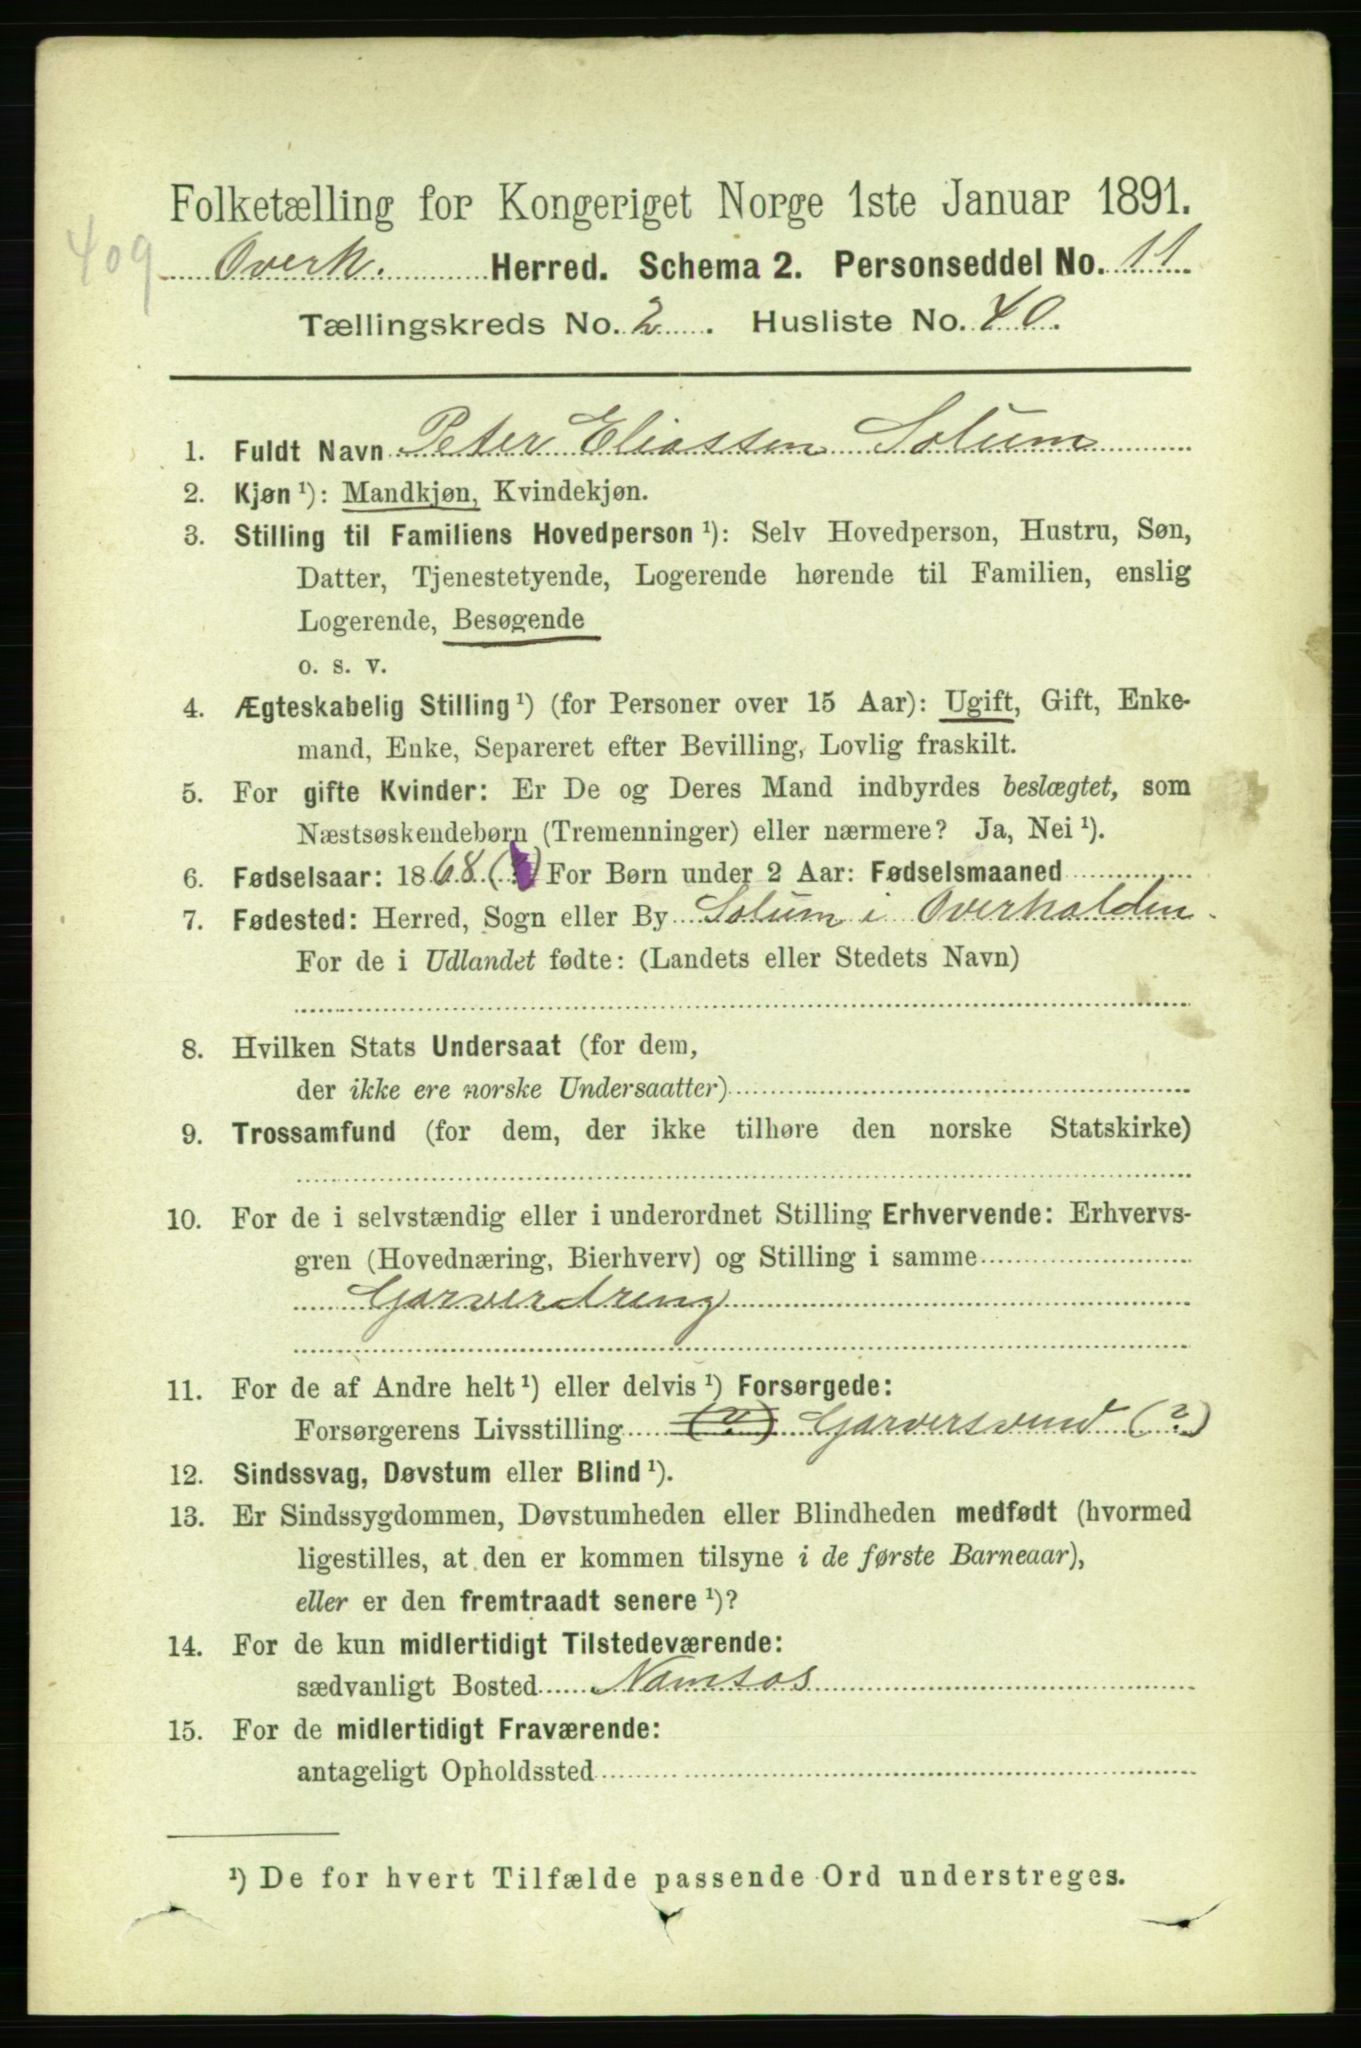 Folketælling for Kongeriget Norge 1ste Januar 1891.
409
Overh. Herred. Schema 2. Personseddel No. 11
Tællingskreds No. 2. Husliste No. 40.
1. Fuldt Navn Peter Eliassen Solum
2. Kjøn ¹): Mandkjøn, Kvindekjøn.
3. Stilling til Familiens Hovedperson ¹): Selv Hovedperson, Hustru, Søn,
Datter, Tjenestetyende, Logerende hørende til Familien, enslig
Logerende, Besøgende
o. s. v.
4. Ægteskabelig Stilling ¹) (for Personer over 15 Aar): Ugift, Gift, Enke-
mand, Enke, Separeret efter Bevilling, Lovlig fraskilt.
5. For gifte Kvinder: Er De og Deres Mand indbyrdes beslægtet, som
Næstsøskendebørn (Tremenninger) eller nærmere? Ja, Nei ¹).
6. Fødselsaar: 1868 (?) For Børn under 2 Aar: Fødselsmaaned
7. Fødested: Herred, Sogn eller By Solum i Overhalden
For de i Udlandet fødte: (Landets eller Stedets Navn)
8. Hvilken Stats Undersaat (for dem,
der ikke ere norske Undersaatter)
9. Trossamfund (for dem, der ikke tilhøre den norske Statskirke)
10. For de i selvstændig eller i underordnet Stilling Erhvervende: Erhvervs-
gren (Hovednæring, Bierhverv) og Stilling i samme
Garverdreng
11. For de af Andre helt ¹) eller delvis ¹) Forsørgede:
Forsørgerens Livsstilling (") Garversvend (?)
12. Sindssvag, Døvstum eller Blind ¹).
13. Er Sindssygdommen, Døvstumheden eller Blindheden medfødt (hvormed
ligestilles, at den er kommen tilsyne i de første Barneaar),
eller er den fremtraadt senere ¹)?
14. For de kun midlertidigt Tilstedeværende:
sædvanligt Bosted Namsos
15. For de midlertidigt Fraværende:
antageligt Opholdssted
¹) De for hvert Tilfælde passende Ord understreges.